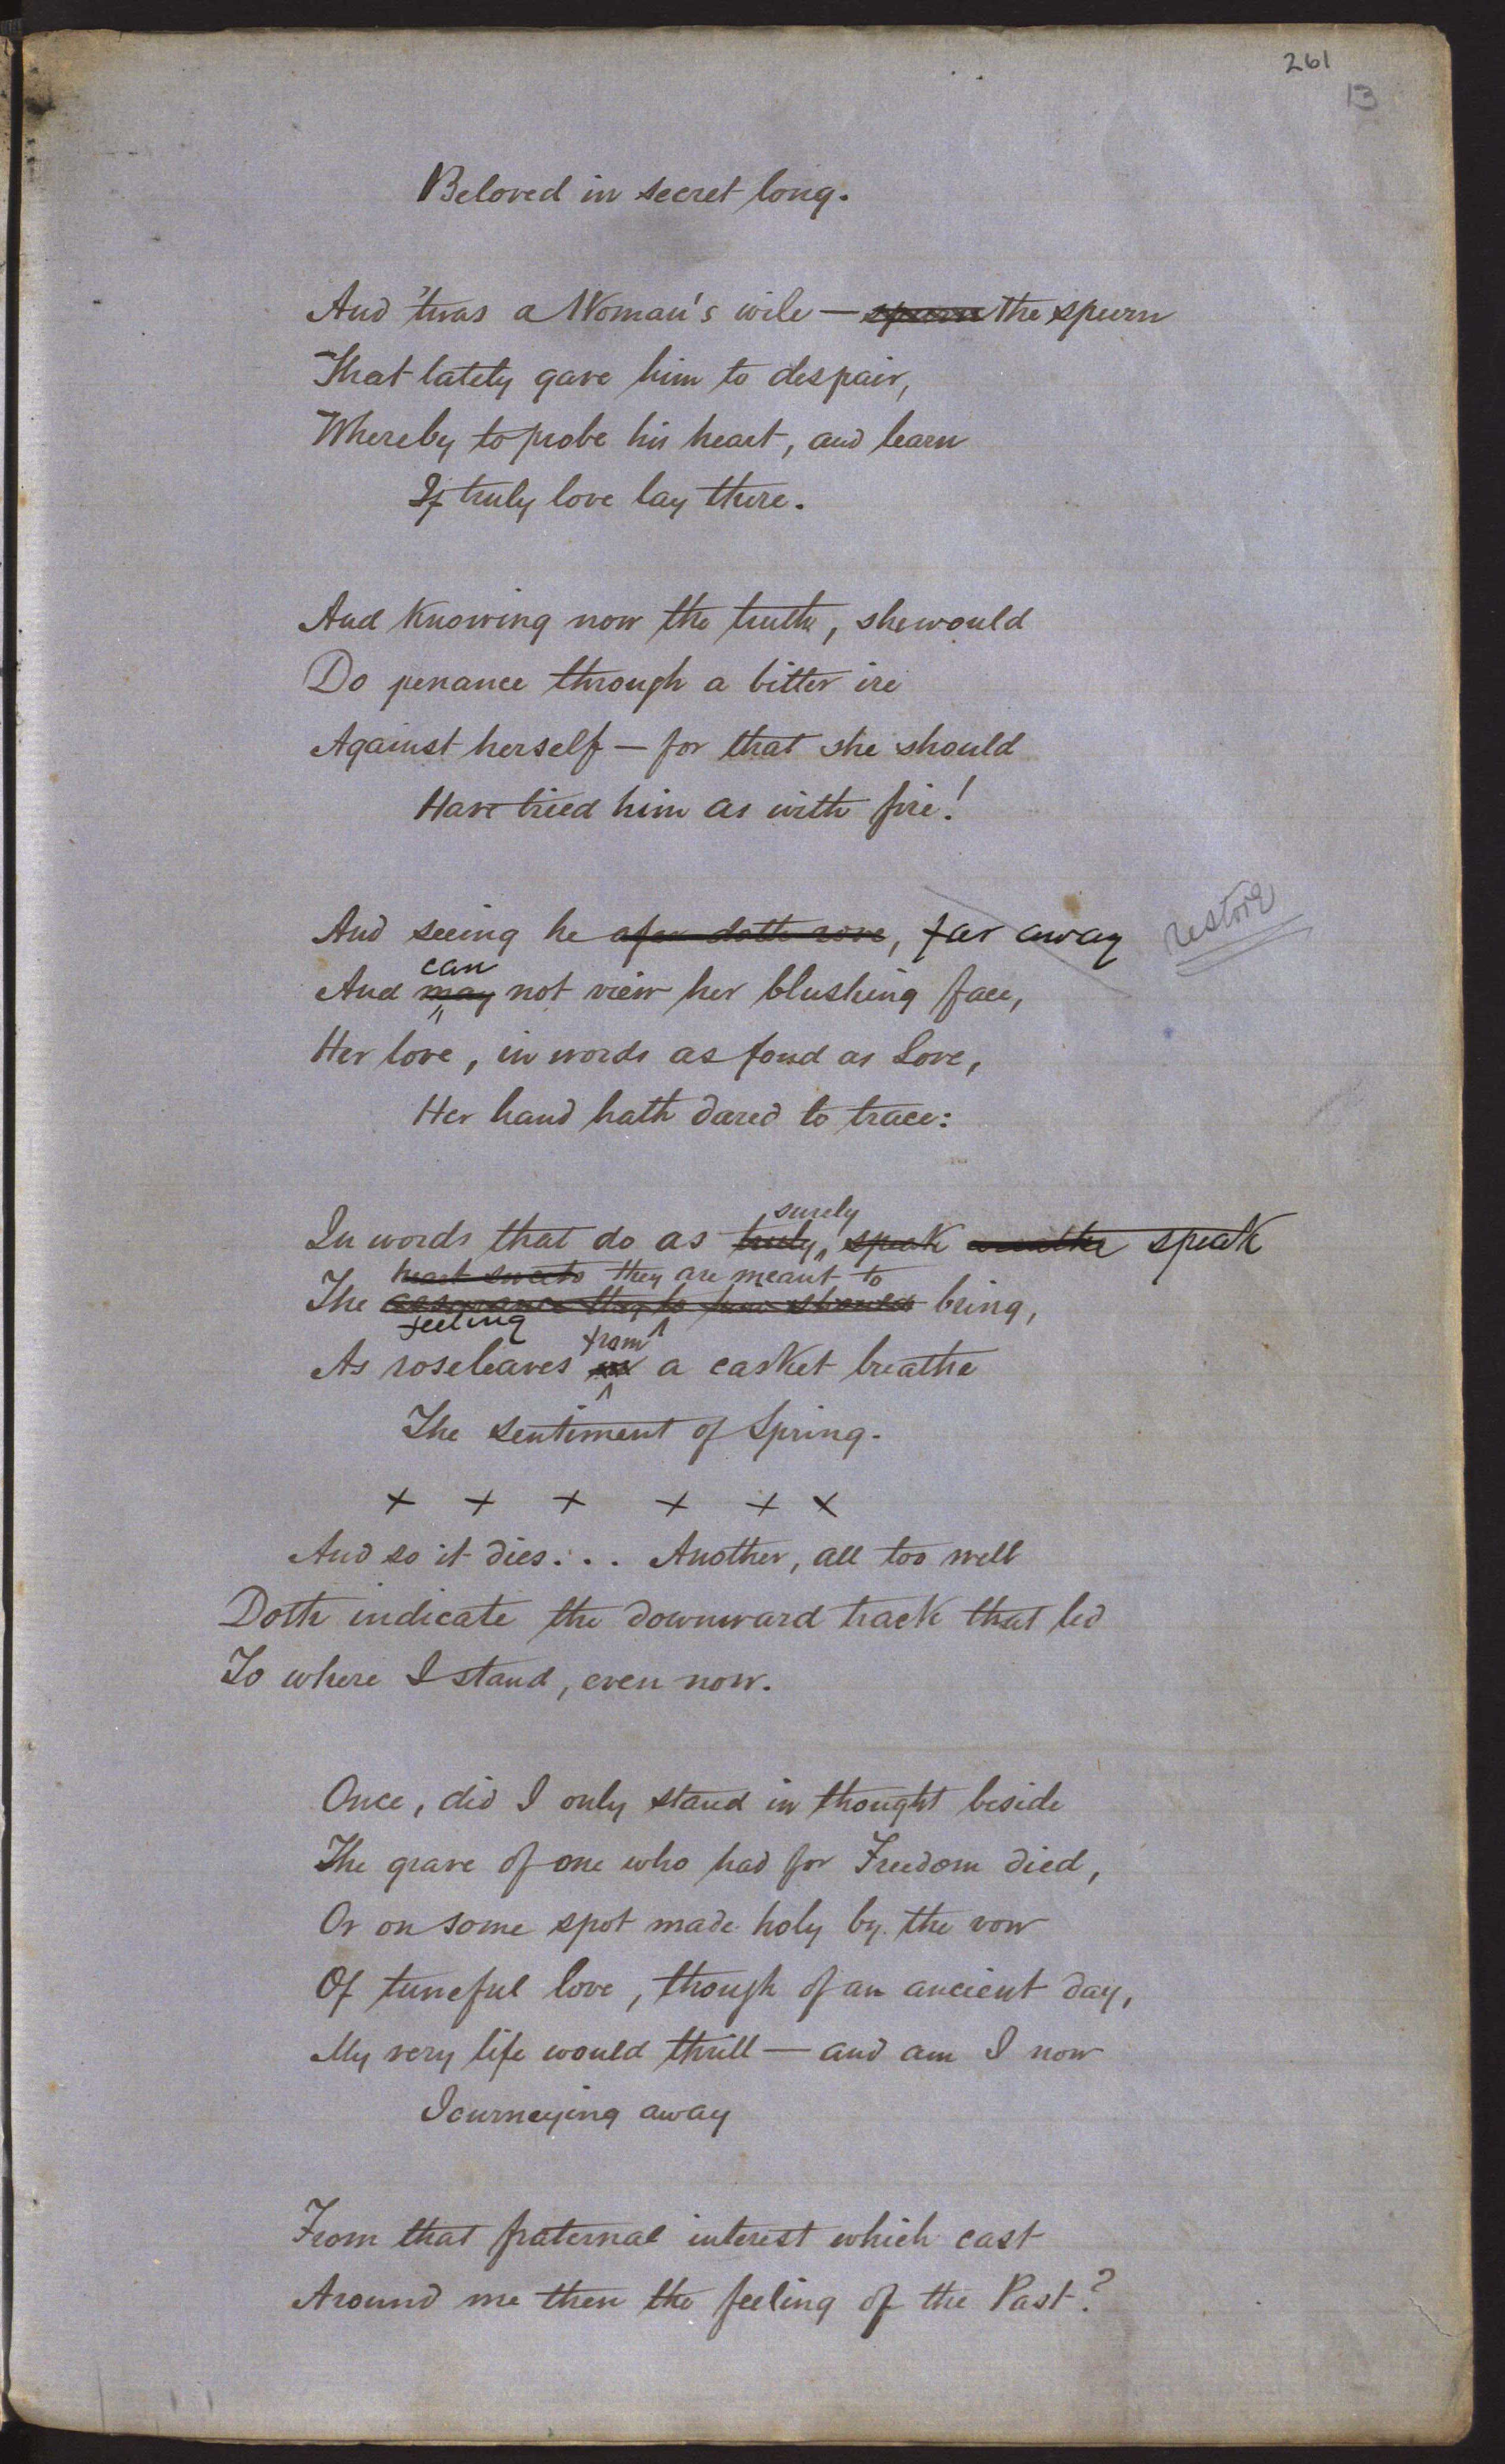 261
13
Beloved in secret long.
And 'twas a Woman's wile — spurn the spurn
That lately gave him to despair,
Whereby to probe his heart, and learn
If truly love lay there.
And knowing now the truth, she would
Do penance through a bitter ire
Against herself — for that she should
Have tried him as with fire!
And seeing he afar doth rove, far away
restore
can
And may not view her blushing face,
Her love, in words as fond as Love,
Her hand hath dared to trace:
surely
In words that do as truly, speak breathe speak
heart sweets they are meant to
The assurance they to him should bring,
feeling
from
As roseleaves in a casket breathe
The sentiment of Spring.
x x x x x x
And so it dies... Another, all too well
Doth indicate the downward track that led
To where I stand, even now.
Once, did I only stand in thought beside
The grave of one who had for Freedom died,
Or on some spot made holy by the vow
Of tuneful love, though of an ancient day,
My very life would thrill — and am I now
Journeying away
From that fraternal interest which cast
Around me then the feeling of the Past?